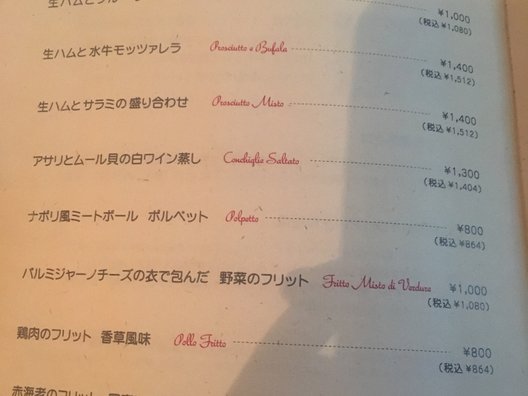 生ハムと
¥1,000
(税込 ¥1,080)
生ハムと水牛モッツァレラ Prosciutto e Bufala ¥1,400
(税込 ¥1,512)
生ハムとサラミの盛り合わせ Prosciutto Misto ¥1,400
(税込 ¥1,512)
アサリとムール貝の白ワイン蒸し Conchiglie Saltato ¥1,300
(税込 ¥1,404)
ナポリ風ミートボール ポルペット Polpetto ¥800
(税込 ¥864)
パルミジャーノチーズの衣で包んだ 野菜のフリット Fritto Misto di Verdure ¥1,000
(税込 ¥1,080)
鶏肉のフリット 香草風味 Pollo Fritto ¥800
(税込 ¥864)
赤海老のフリット